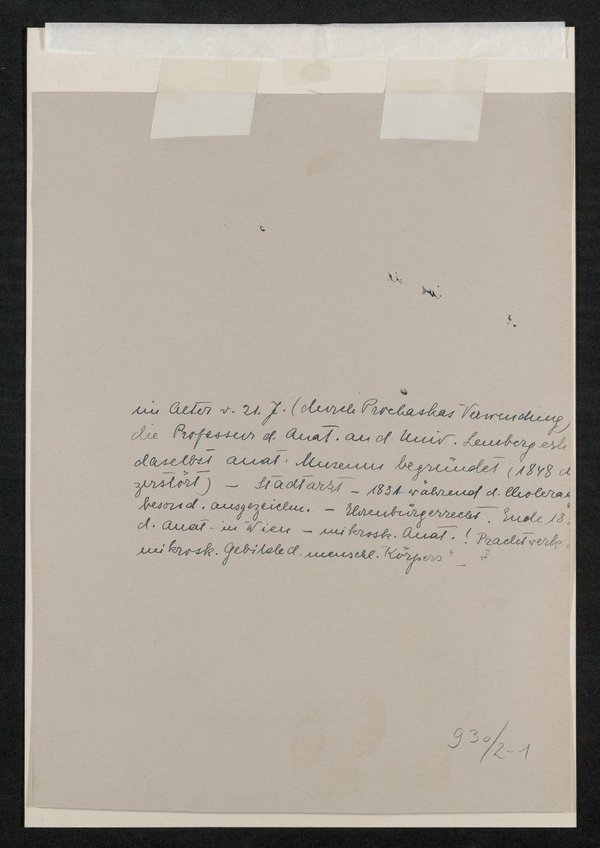 im Alter v. 21. J. (durch Prochaskas Verwendung)
die Professur d. Anat. an d. Univ. Lemberg erh
daselbst anat. Museum begründet (1848 d
zerstört) – Stadtarzt – 1831 während d. Cholera
besond. ausgezeichn. – Ehrenbürgerrecht. Ende 18
d. Anat. in Wien – mikrosk. Anat.! Prachtwerk
mikrosk. Gebilde d. menschl. Körpers" –
930/2-1